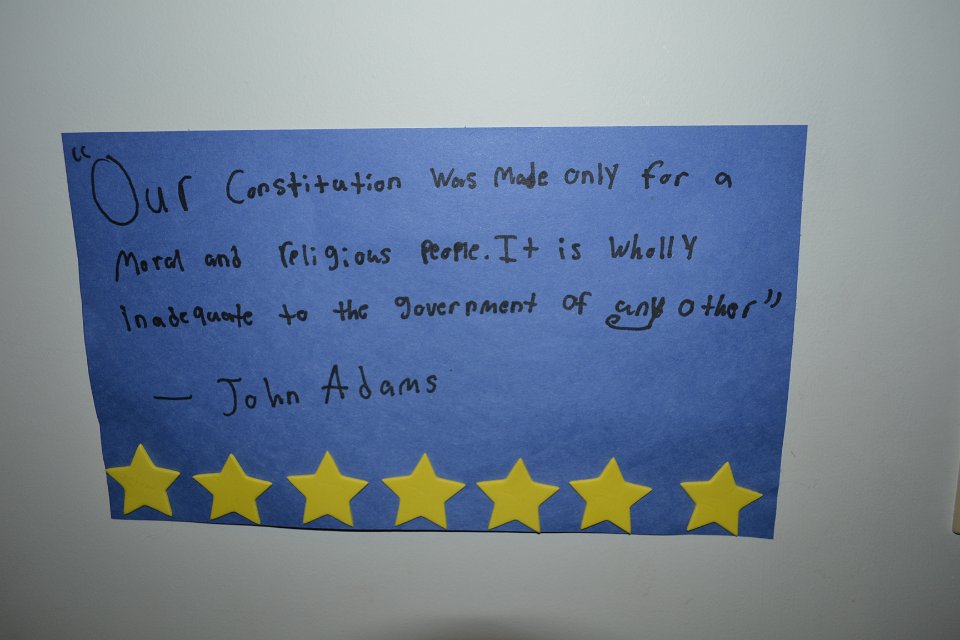 "Our Constitution was made only for a
Moral and religious people. It is wholly
inadequate to the government of any other"
— John Adams